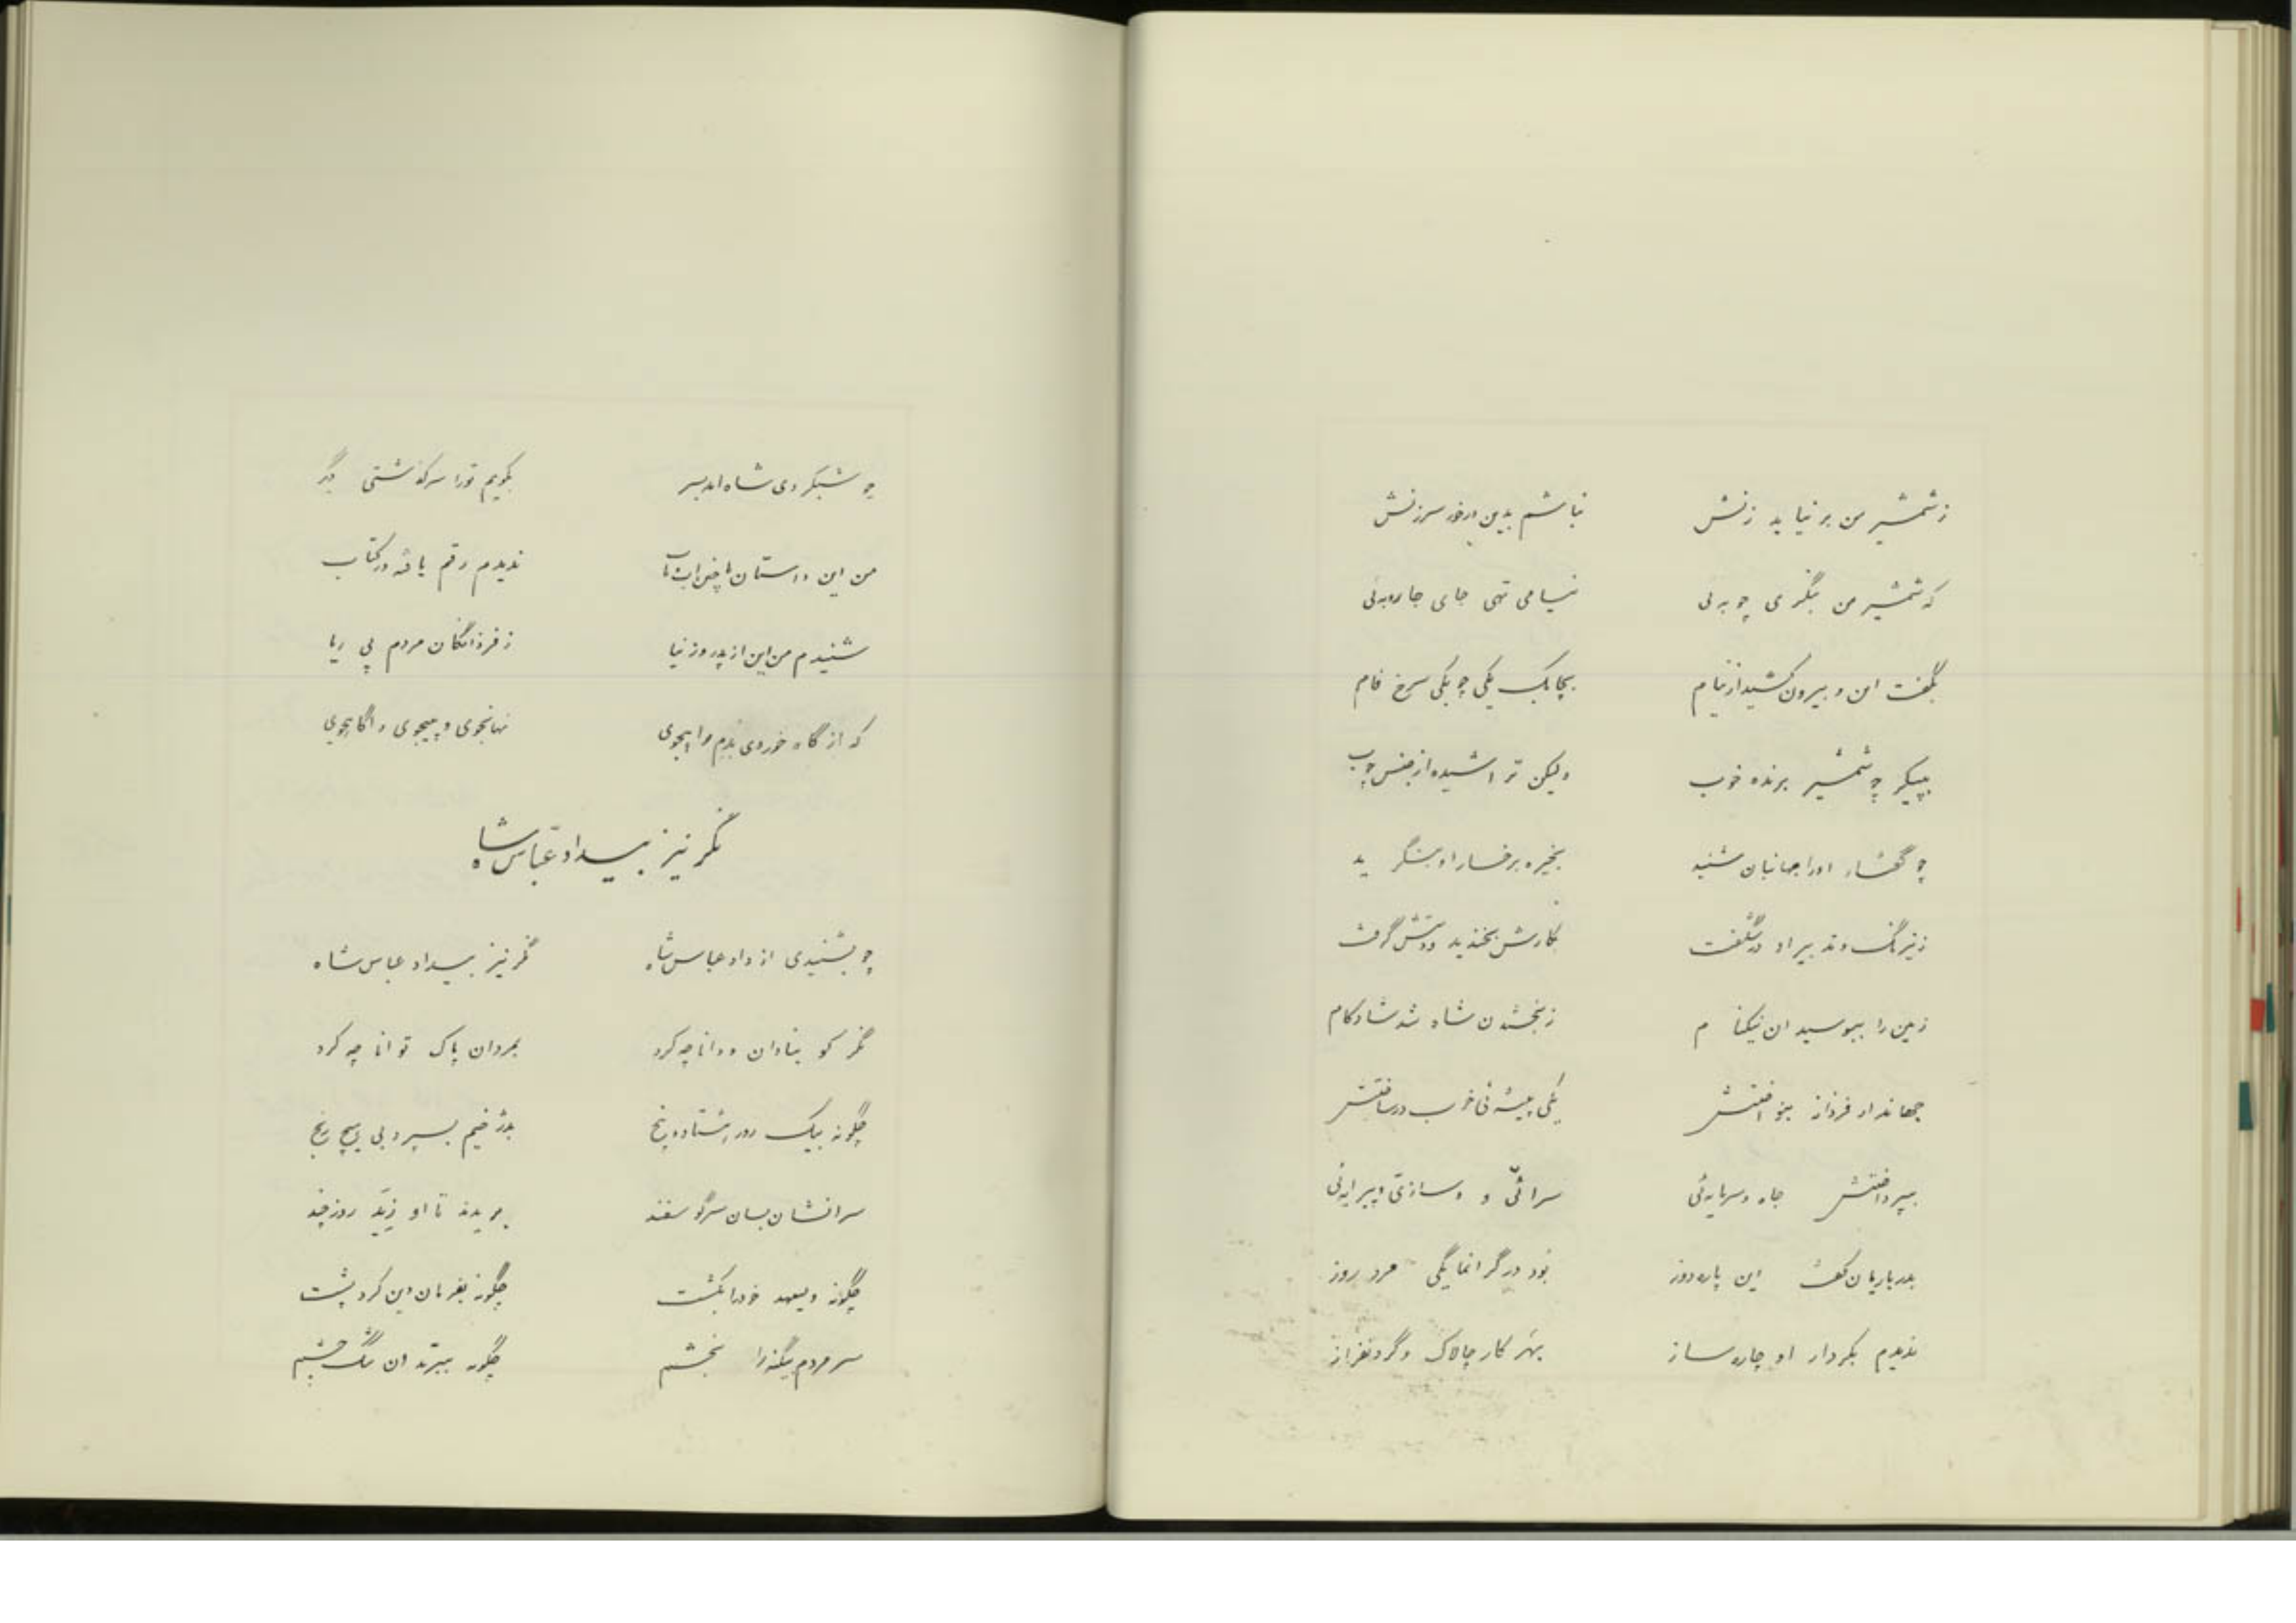 ز شمشیر من بر نیاید زنش نباشم بدین درخور سرزنش
که شمشیر من بنگری چوبه‌ئی نیامی تهی جای جاروبه‌ئی
بگفت این و بیرون کشید از نیام بچابک یکی چوبکی سرخ فام
بپیکر چو شمشیر برنده خوب ولیکن تراشیده از جنس چوب
چو گفتار او را جهانبان شنید بخیره بر خسار او بنگرید
ز نیرنگ و تدبیر او در شگفت بکارش بخندید و دستش گرفت
زمین را ببوسید ان نیکنام ز بخشیدن شاه شد شادکام
جهاندار فرزانه بنواختش یکی پیشه‌ئی خوب در ساختش
بپرداختش جاه و سرمایه‌ئی سرائی و وسازی و پیرایه‌ئی
بدرباریان گفت این پاره‌دوز بود در گرانمایگی مرد روز
ندیدم بکردار او چاره‌ساز بهر کار چالاک و گردنفراز
چو شبگردی شاه امد بسر بگویم تو را سرگذشتی دگر
من این داستان با چنین اب و تاب ندیدم رقم یافته در کتاب
شنیدم من این از پدر وز نیا ز فرزانگان مردم بی ریا
که از گاه خوردی بدم واپجوی نهانجوی و پیجوی و اگاهجوی
نگر نیز بیداد عبّاس شاه
چو بشنیدی از داد عباس شاه نگر نیز بیداد عباس شاه
نگر کو بنادان و دانا چه کرد بمردان پاک توانا چه کرد
چگونه بیک روز هشتاد و پنج بدژخیم بسپرد بی هیچ رنج
سرانشان بسان سر گوسفند بریدند تا او زید روز چند
چگونه ولیعهد خود را بکشت چگونه بفرمان دین کرد پشت
سر مردم بیگنه را بخشم چگونه ببرّند ان تنگ چشم